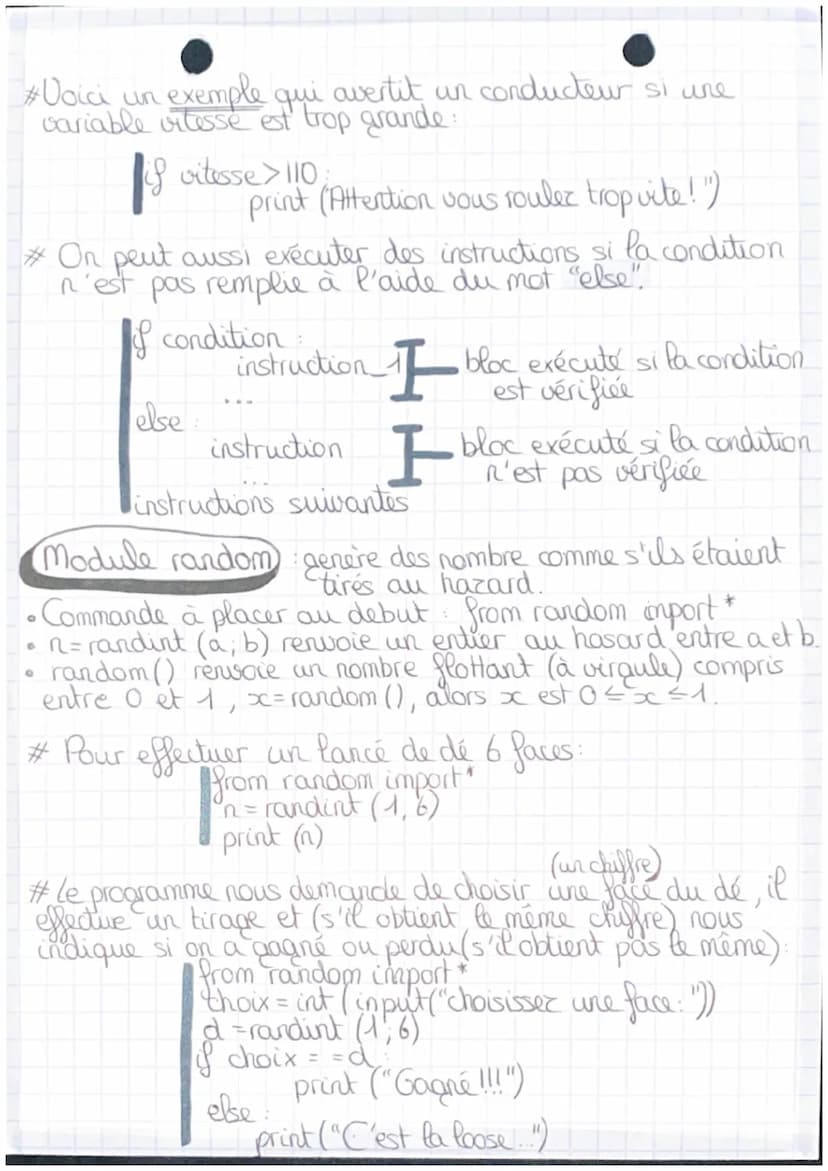 #Voici un exemple qui avertit un conducteur si une
variable vitesse est trop grande:
if vitesse>110:
print (Attention vous roulez trop vite!")
# On peut aussi exécuter des instructions si la condition
n'est pas remplie à l'aide du mot "else".
if condition:
instruction_1 bloc exécuté si la condition
... est vérifiée
else:
instruction bloc exécuté si la condition
... n'est pas vérifiée
instructions suivantes
Module random : genère des nombre comme s'ils étaient
tirés au hazard.
• Commande à placer au debut : from random import *
• n=randint (a;b) renvoie un entier au hasard entre a et b.
• random() renvoie un nombre flottant (à virgule) compris
entre 0 et 1, x=random(), alors x est 0≤x≤1.
# Pour effectuer un lancé de dé 6 faces:
from random import*
n=randint (1,6)
print (n)
(un chiffre)
# Le programme nous demande de choisir une face du dé, il
effectue un tirage et (s'il obtient le même chiffre) nous
indique si on a gagné ou perdu (s'il obtient pas le même):
from random import*
choix = int (input("choisissez une face:"))
d=randint (1;6)
if choix = =d:
print ("Gagné!!!")
else:
print("C'est la loose...")